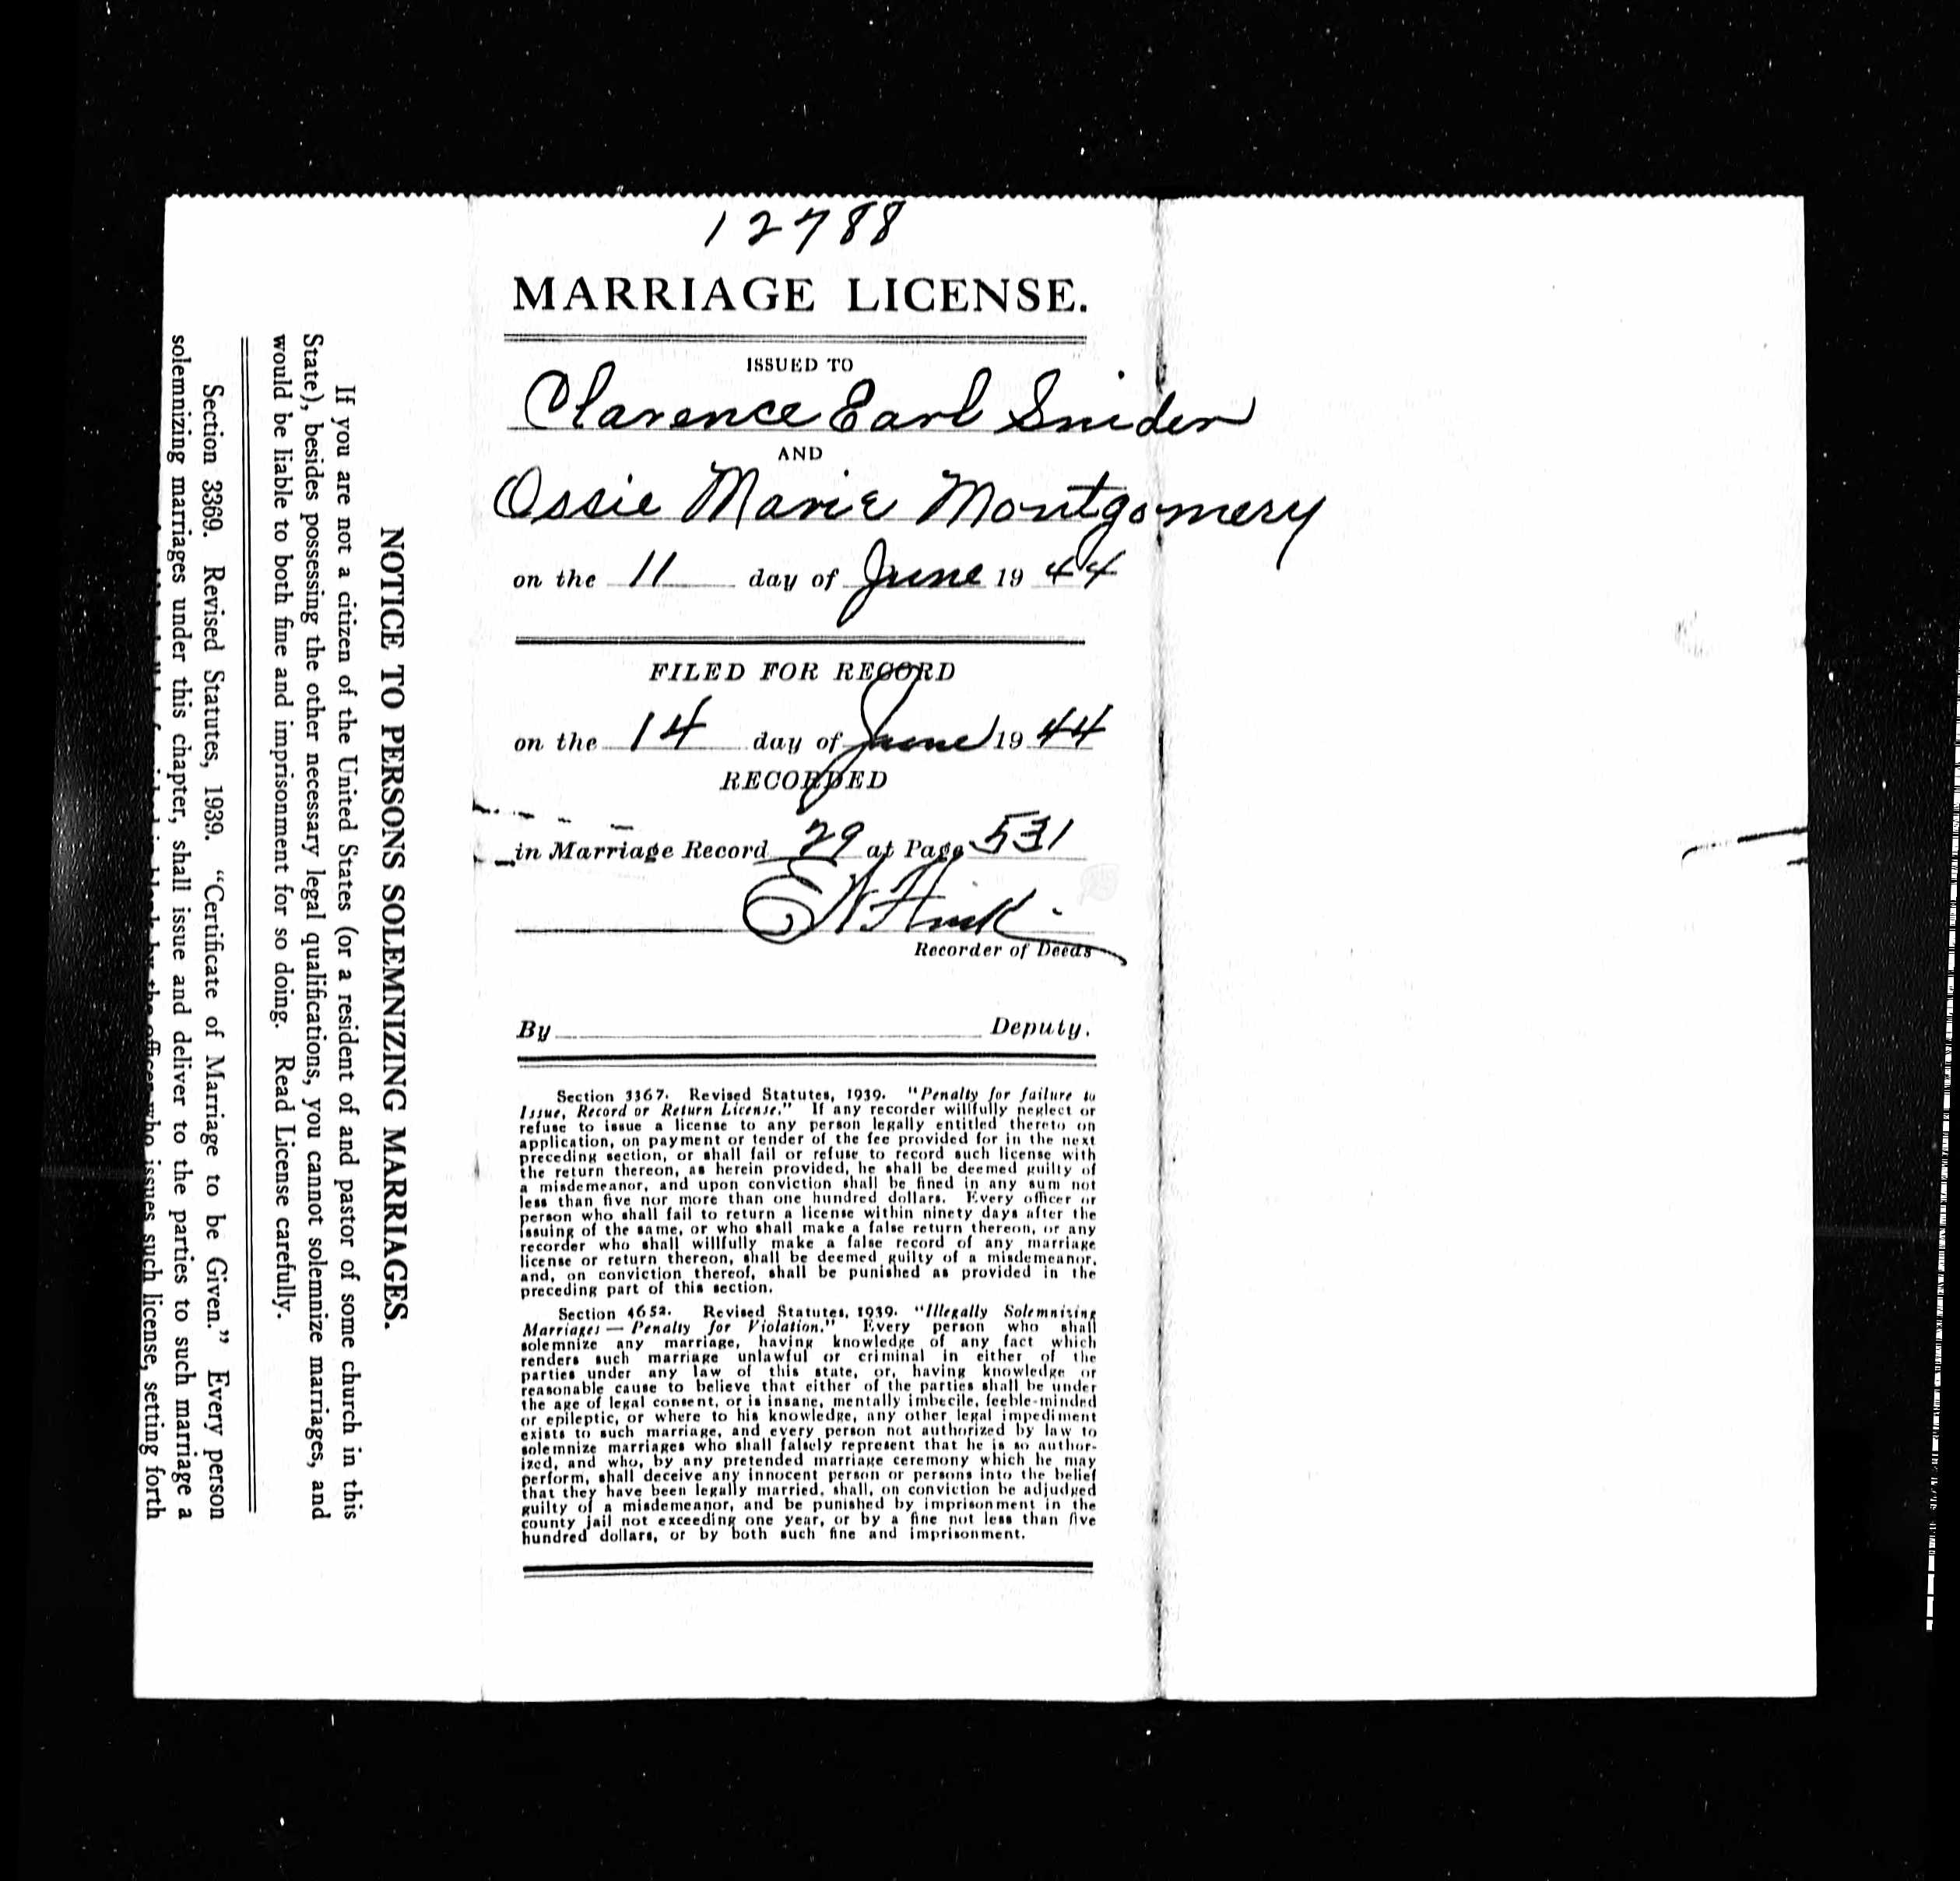 12788
MARRIAGE LICENSE.
ISSUED TO
Clarence Earl Snider
AND
Ossie Marie Montgomery
on the 11 day of June 1944
FILED FOR RECORD
on the 14 day of June 1944
RECORDED
in Marriage Record 29 at Page 531
Recorder of Deeds
By Deputy.
Section 3367. Revised Statutes, 1939. "Penalty for failure to
Issue, Record or Return License." If any recorder willfully neglect or
refuse to issue a license to any person legally entitled thereto on
application, on payment or tender of the fee provided for in the next
preceding section, or shall fail or refuse to record such license with
the return thereon, as herein provided, he shall be deemed guilty of
a misdemeanor, and upon conviction shall be fined in any sum not
less than five nor more than one hundred dollars. Every officer or
person who shall fail to return a license within ninety days after the
issuing of the same, or who shall make a false return thereon, or any
recorder who shall willfully make a false record of any marriage
license or return thereon, shall be deemed guilty of a misdemeanor,
and, on conviction thereof, shall be punished as provided in the
preceding part of this section.
Section 4652. Revised Statutes, 1939. "Illegally Solemnizing
Marriages — Penalty for Violation." Every person who shall
solemnize any marriage, having knowledge of any fact which
renders such marriage unlawful or criminal in either of the
parties under any law of this state, or, having knowledge or
reasonable cause to believe that either of the parties shall be under
the age of legal consent, or is insane, mentally imbecile, feeble-minded
or epileptic, or where to his knowledge, any other legal impediment
exists to such marriage, and every person not authorized by law to
solemnize marriages who shall falsely represent that he is so author-
ized, and who, by any pretended marriage ceremony which he may
perform, shall deceive any innocent person or persons into the belief
that they have been legally married, shall, on conviction be adjudged
guilty of a misdemeanor, and be punished by imprisonment in the
county jail not exceeding one year, or by a fine not less than five
hundred dollars, or by both such fine and imprisonment.
NOTICE TO PERSONS SOLEMNIZING MARRIAGES.
If you are not a citizen of the United States (or a resident of and pastor of some church in this
State), besides possessing the other necessary legal qualifications, you cannot solemnize marriages, and
would be liable to both fine and imprisonment for so doing. Read License carefully.
Section 3369. Revised Statutes, 1939. "Certificate of Marriage to be Given." Every person
solemnizing marriages under this chapter, shall issue and deliver to the parties to such marriage a
by the officer who issues such license, setting forth